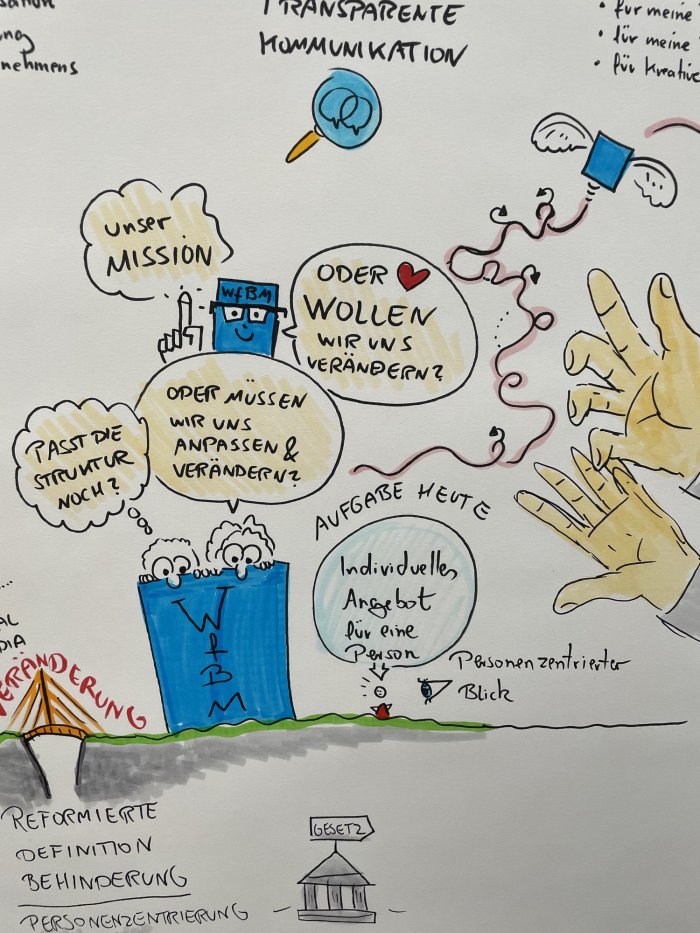 TRANSPARENTE
KOMMUNIKATION
nehmens
• für meine
• für meine
• für Kreative
unser
MISSION
WfBM
ODER
WOLLEN
WIR UNS
VERÄNDERN?
ODER MÜSSEN
WIR UNS
ANPASSEN &
VERÄNDERN?
PASST DIE
STRUKTUR
NOCH?
AUFGABE HEUTE
Individuelles
Angebot
für eine
Person
Personenzentrierter
Blick
WfBM
VERÄNDERUNG
REFORMIERTE
DEFINITION
BEHINDERUNG
PERSONENZENTRIERUNG
GESETZ